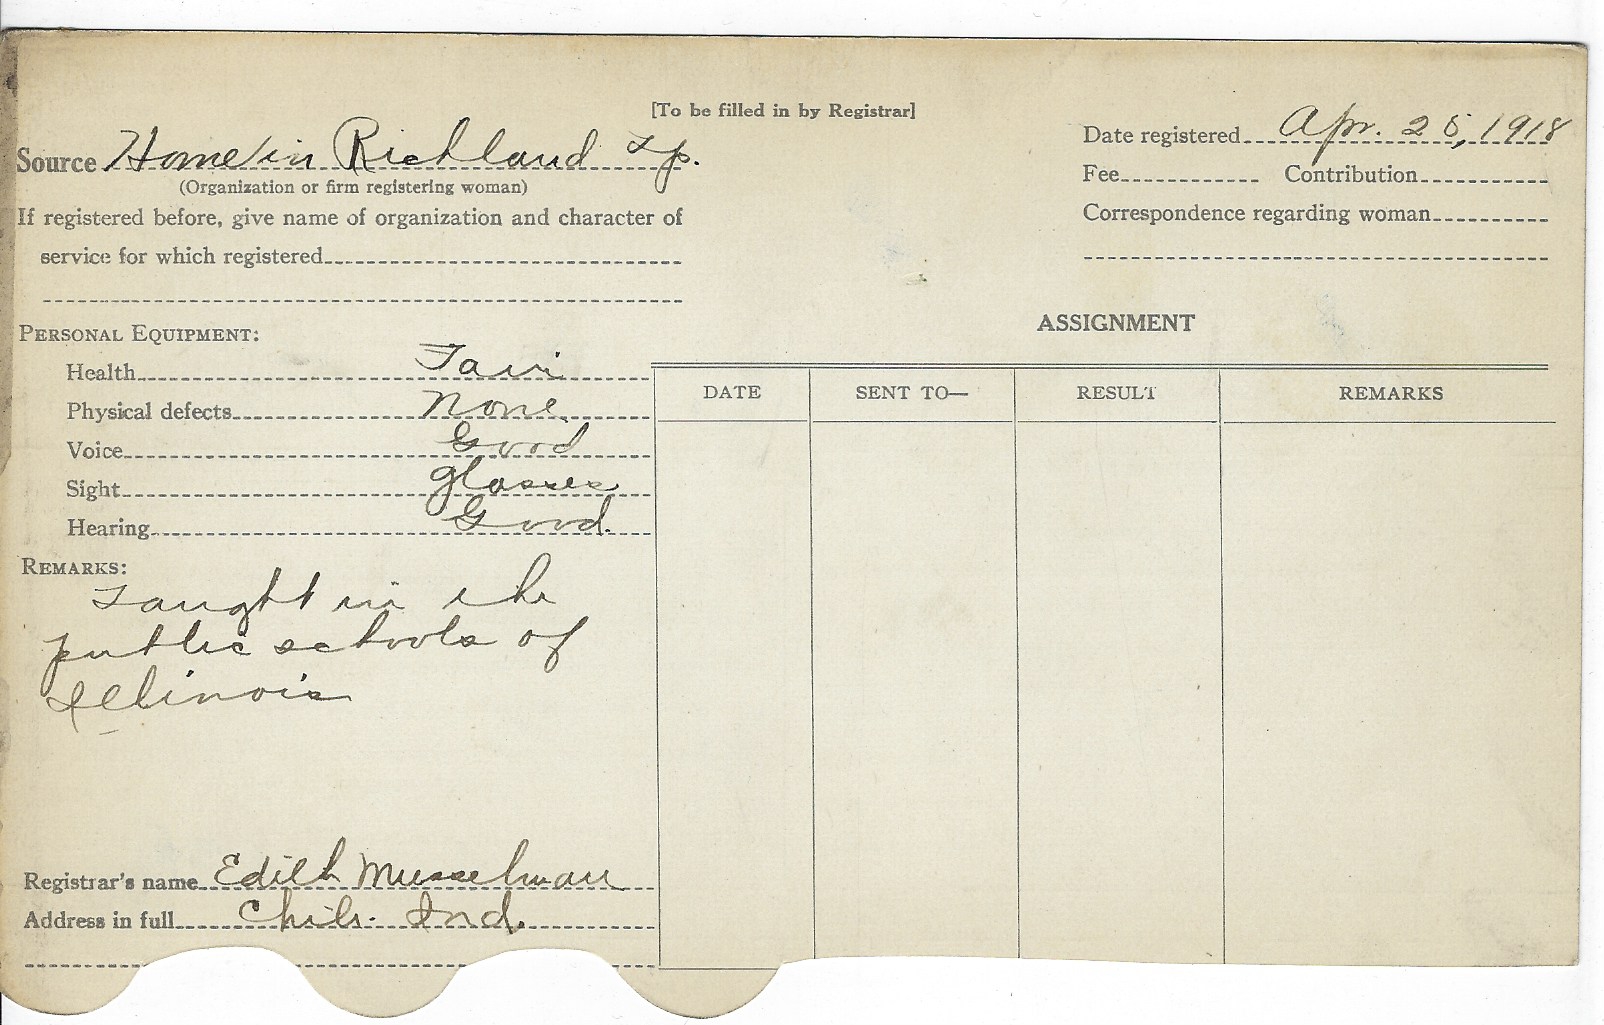 [To be filled in by Registrar]
Source Home in Richland Tp.
(Organization or firm registering woman)
If registered before, give name of organization and character of
service for which registered
Date registered Apr. 25, 1918
Fee Contribution
Correspondence regarding woman
PERSONAL EQUIPMENT:
Health Fair
Physical defects None
Voice Good
Sight glasses
Hearing Good.
REMARKS:
Taught in the
public schools of
Illinois
Registrar's name Edith Musselman
Address in full Chili. Ind.
ASSIGNMENT
DATE SENT TO— RESULT REMARKS